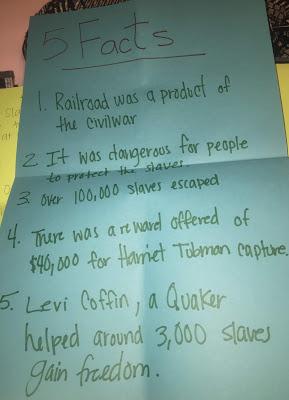 5 Facts
1. Railroad was a product of
the civilwar
2. It was dangerous for people
to protect the slaves.
3. over 100,000 slaves escaped
4. There was a reward offered of
$40,000 for Harriet Tubman capture.
5. Levi Coffin, a Quaker
helped around 3,000 slaves
gain freedom.